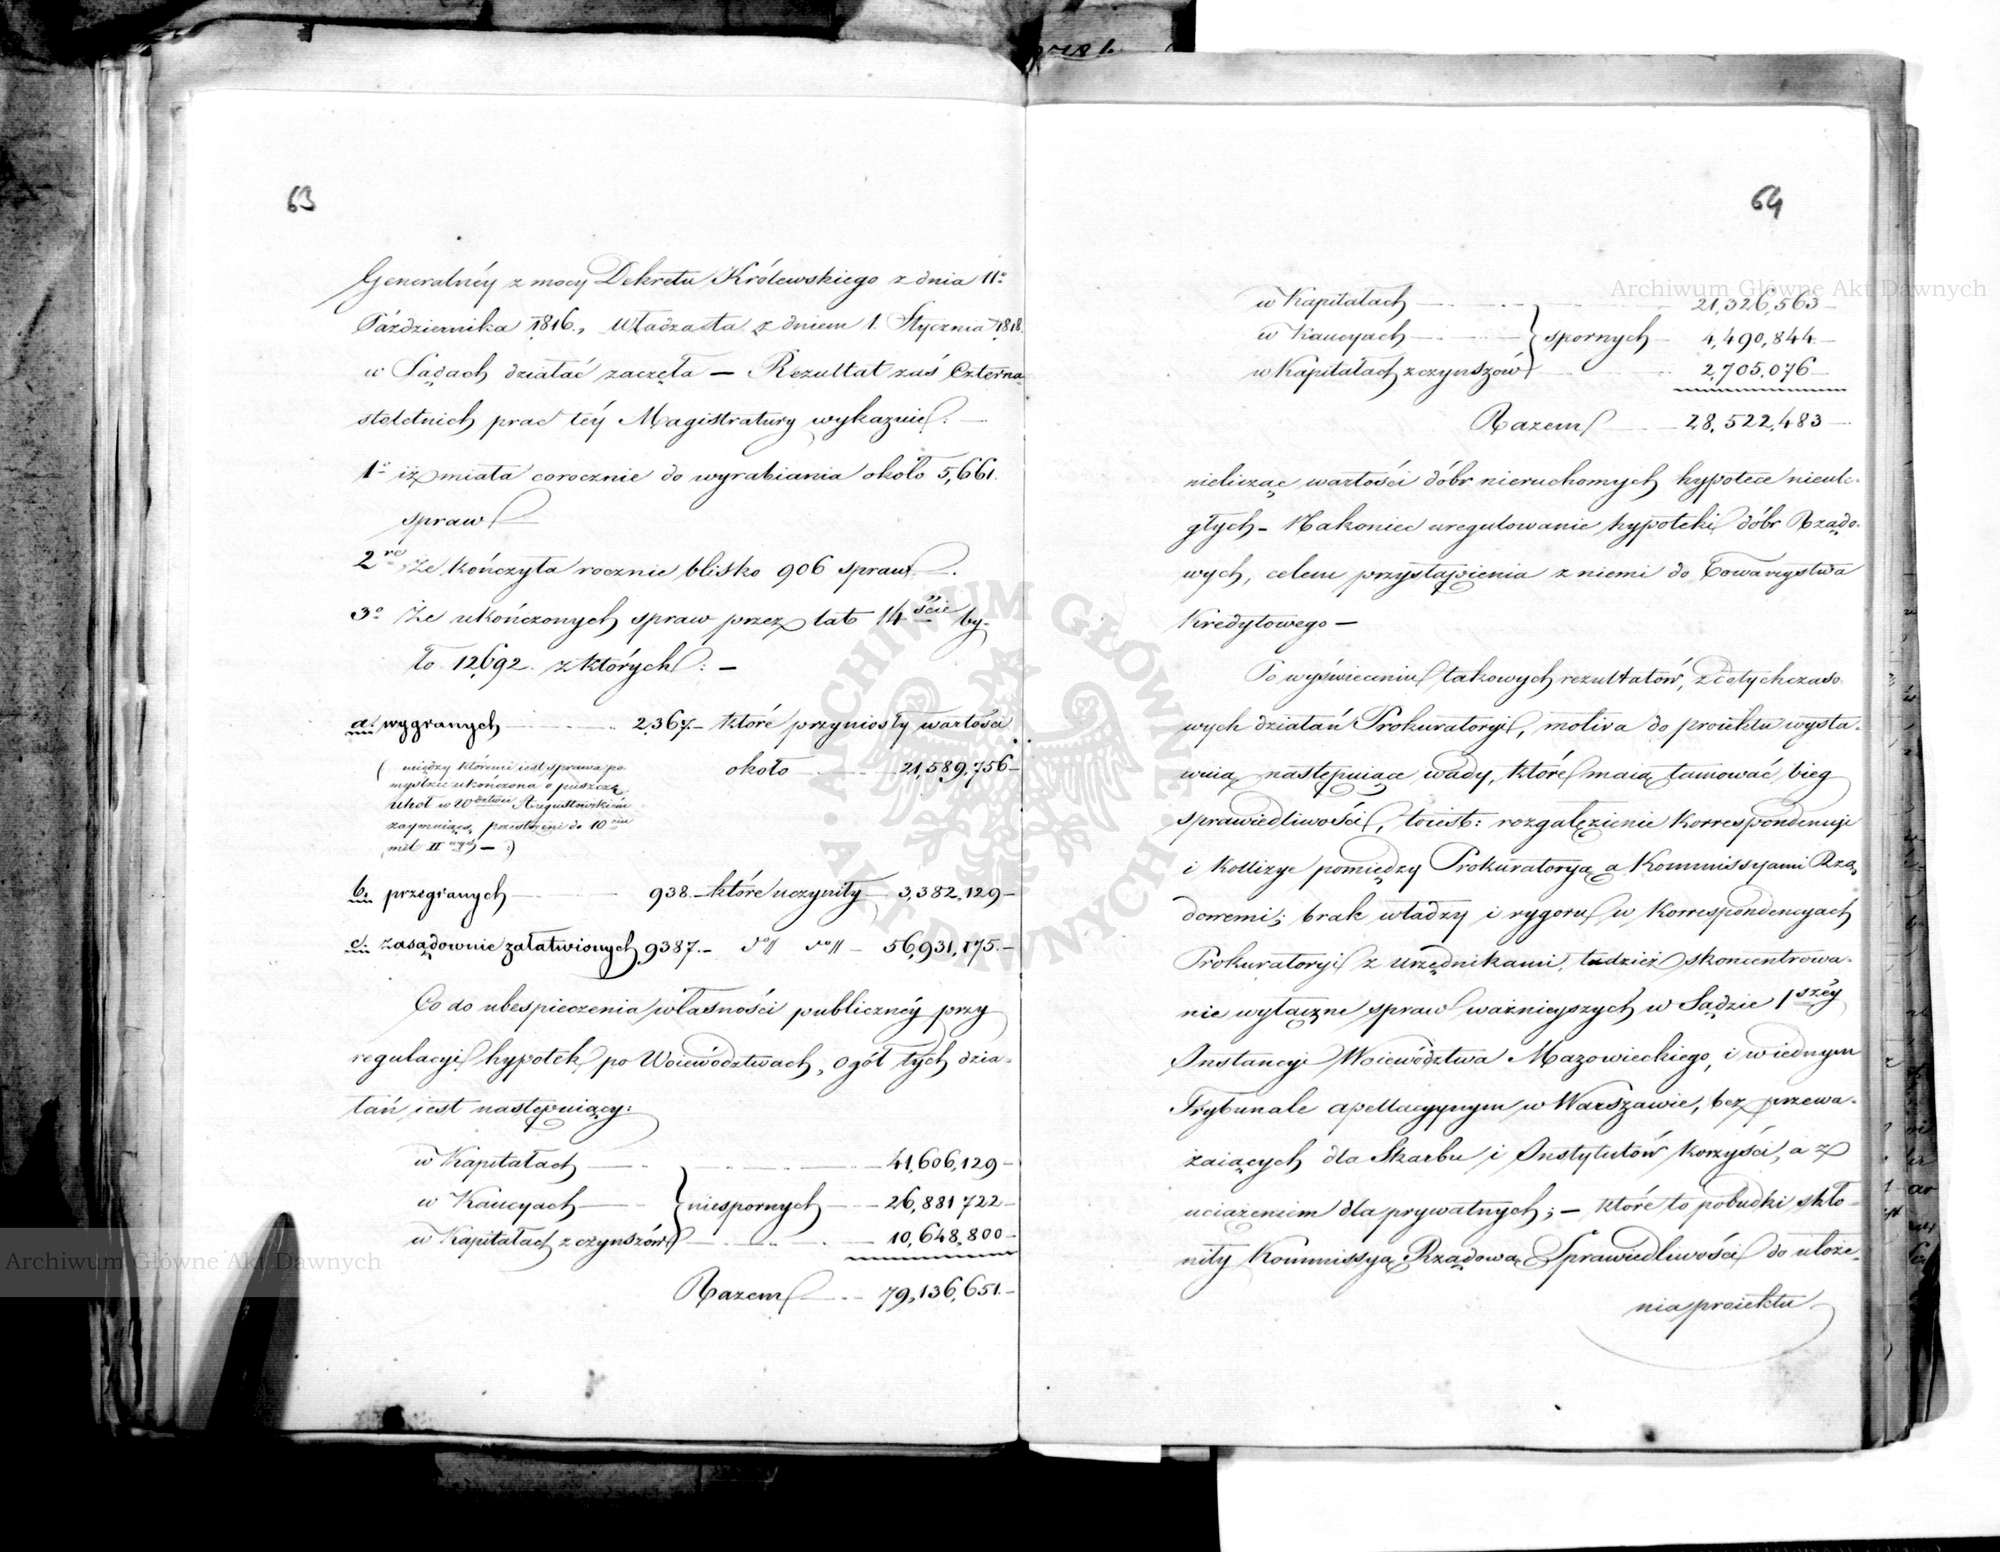 63
Generalnéy z mocy Dekretu Królewskiego z dnia 11º
Października 1816., Władza ta z dniem 1. Stycznia 1818.
w Sądach działać zaczęła — Rezultat zaś Czterna
stoletnich prac téy Magistratury wykazuie: —
1º iż miała corocznie do wyrabiania około 5,661.
spraw
2re że kończyła rocznie blisko 906 spraw —.
3º że ukończonych spraw przez lat 14ście by-
ło 12692. z których: —
a. wygranych — 2,367. — które przyniosły wartości
około — 21,589,756 —
( między któremi iest sprawa po
myślnie ukończona o puszczą
w Wdztwie Augustowskiém
zaymuiącą przestrzeni do 10ciu
mil □wych — :)
b. przegranych — 938. — które uczyniły — 3,382,129 —
c. zasądownie załatwionych 9387. — do // do // — 56,931,175. —
Co do ubespieczenia własności publicznéy przy
regulacyi hypotek po Woiewództwach, ogół tych dzia-
łań iest następuiący:
w Kapitałach — 41,606,129 —
w Kaucyach — } niespornych — 26,881,722 —
w Kapitałach z czynszów — 10,648,800 —
Razem — 79,136,651. —
64
w Kapitałach — 21,326,563 —
w Kaucyach — } spornych — 4,490,844. —
w Kapitałach z czynszów — 2,705,076 —
Razem — 28,522,483 —
nielicząc wartości dóbr nieruchomych hypotece nieule-
głych — Nakoniec uregulowanie hypoteki dóbr Rządo-
wych, celem przystąpienia z niemi do Towarzystwa
Kredytowego —
Po wyświeceniu takowych rezultatów, z dotychczaso-
wych działań Prokuratoryi, motiva do proiektu wysta-
wuią następuiące wady, które maią tamować bieg
sprawiedliwości, toiest: rozgałęzienie Korrespondencyi
i kollizye pomiędzy Prokuratoryą a Kommissyami Rzą-
dowemi; brak władzy i rygoru w Korrespondencyach
Prokuratoryi z urzędnikami, tudzież skoncentrowa-
nie wyłączne spraw ważnieyszych w Sądzie 1széy
Instancyi Woiewództwa Mazowieckiego, i w iednym
Trybunale apellacyynym w Warszawie, bez przewa-
żaiących dla Skarbu i Instytutów korzyści, a z
uciążeniem dla prywatnych; — które to pobudki skło-
niły Kommissyą Rządową Sprawiedliwości do ułoże-
nia proiektu
Archiwum Główne Akt Dawnych
Archiwum Główne Akt Dawnych
ARCHIWUM GŁÓWNE AKT DAWNYCH